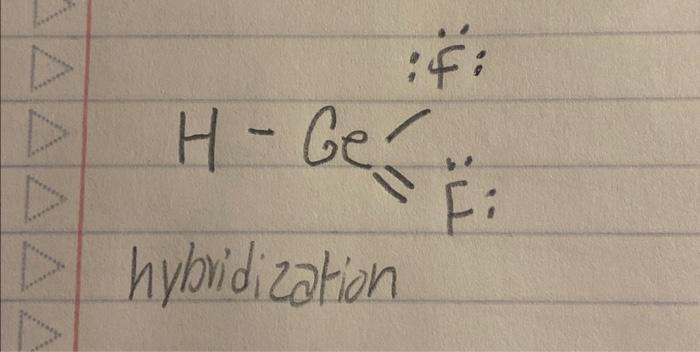 :F:
H - Ge
F:
hybridization